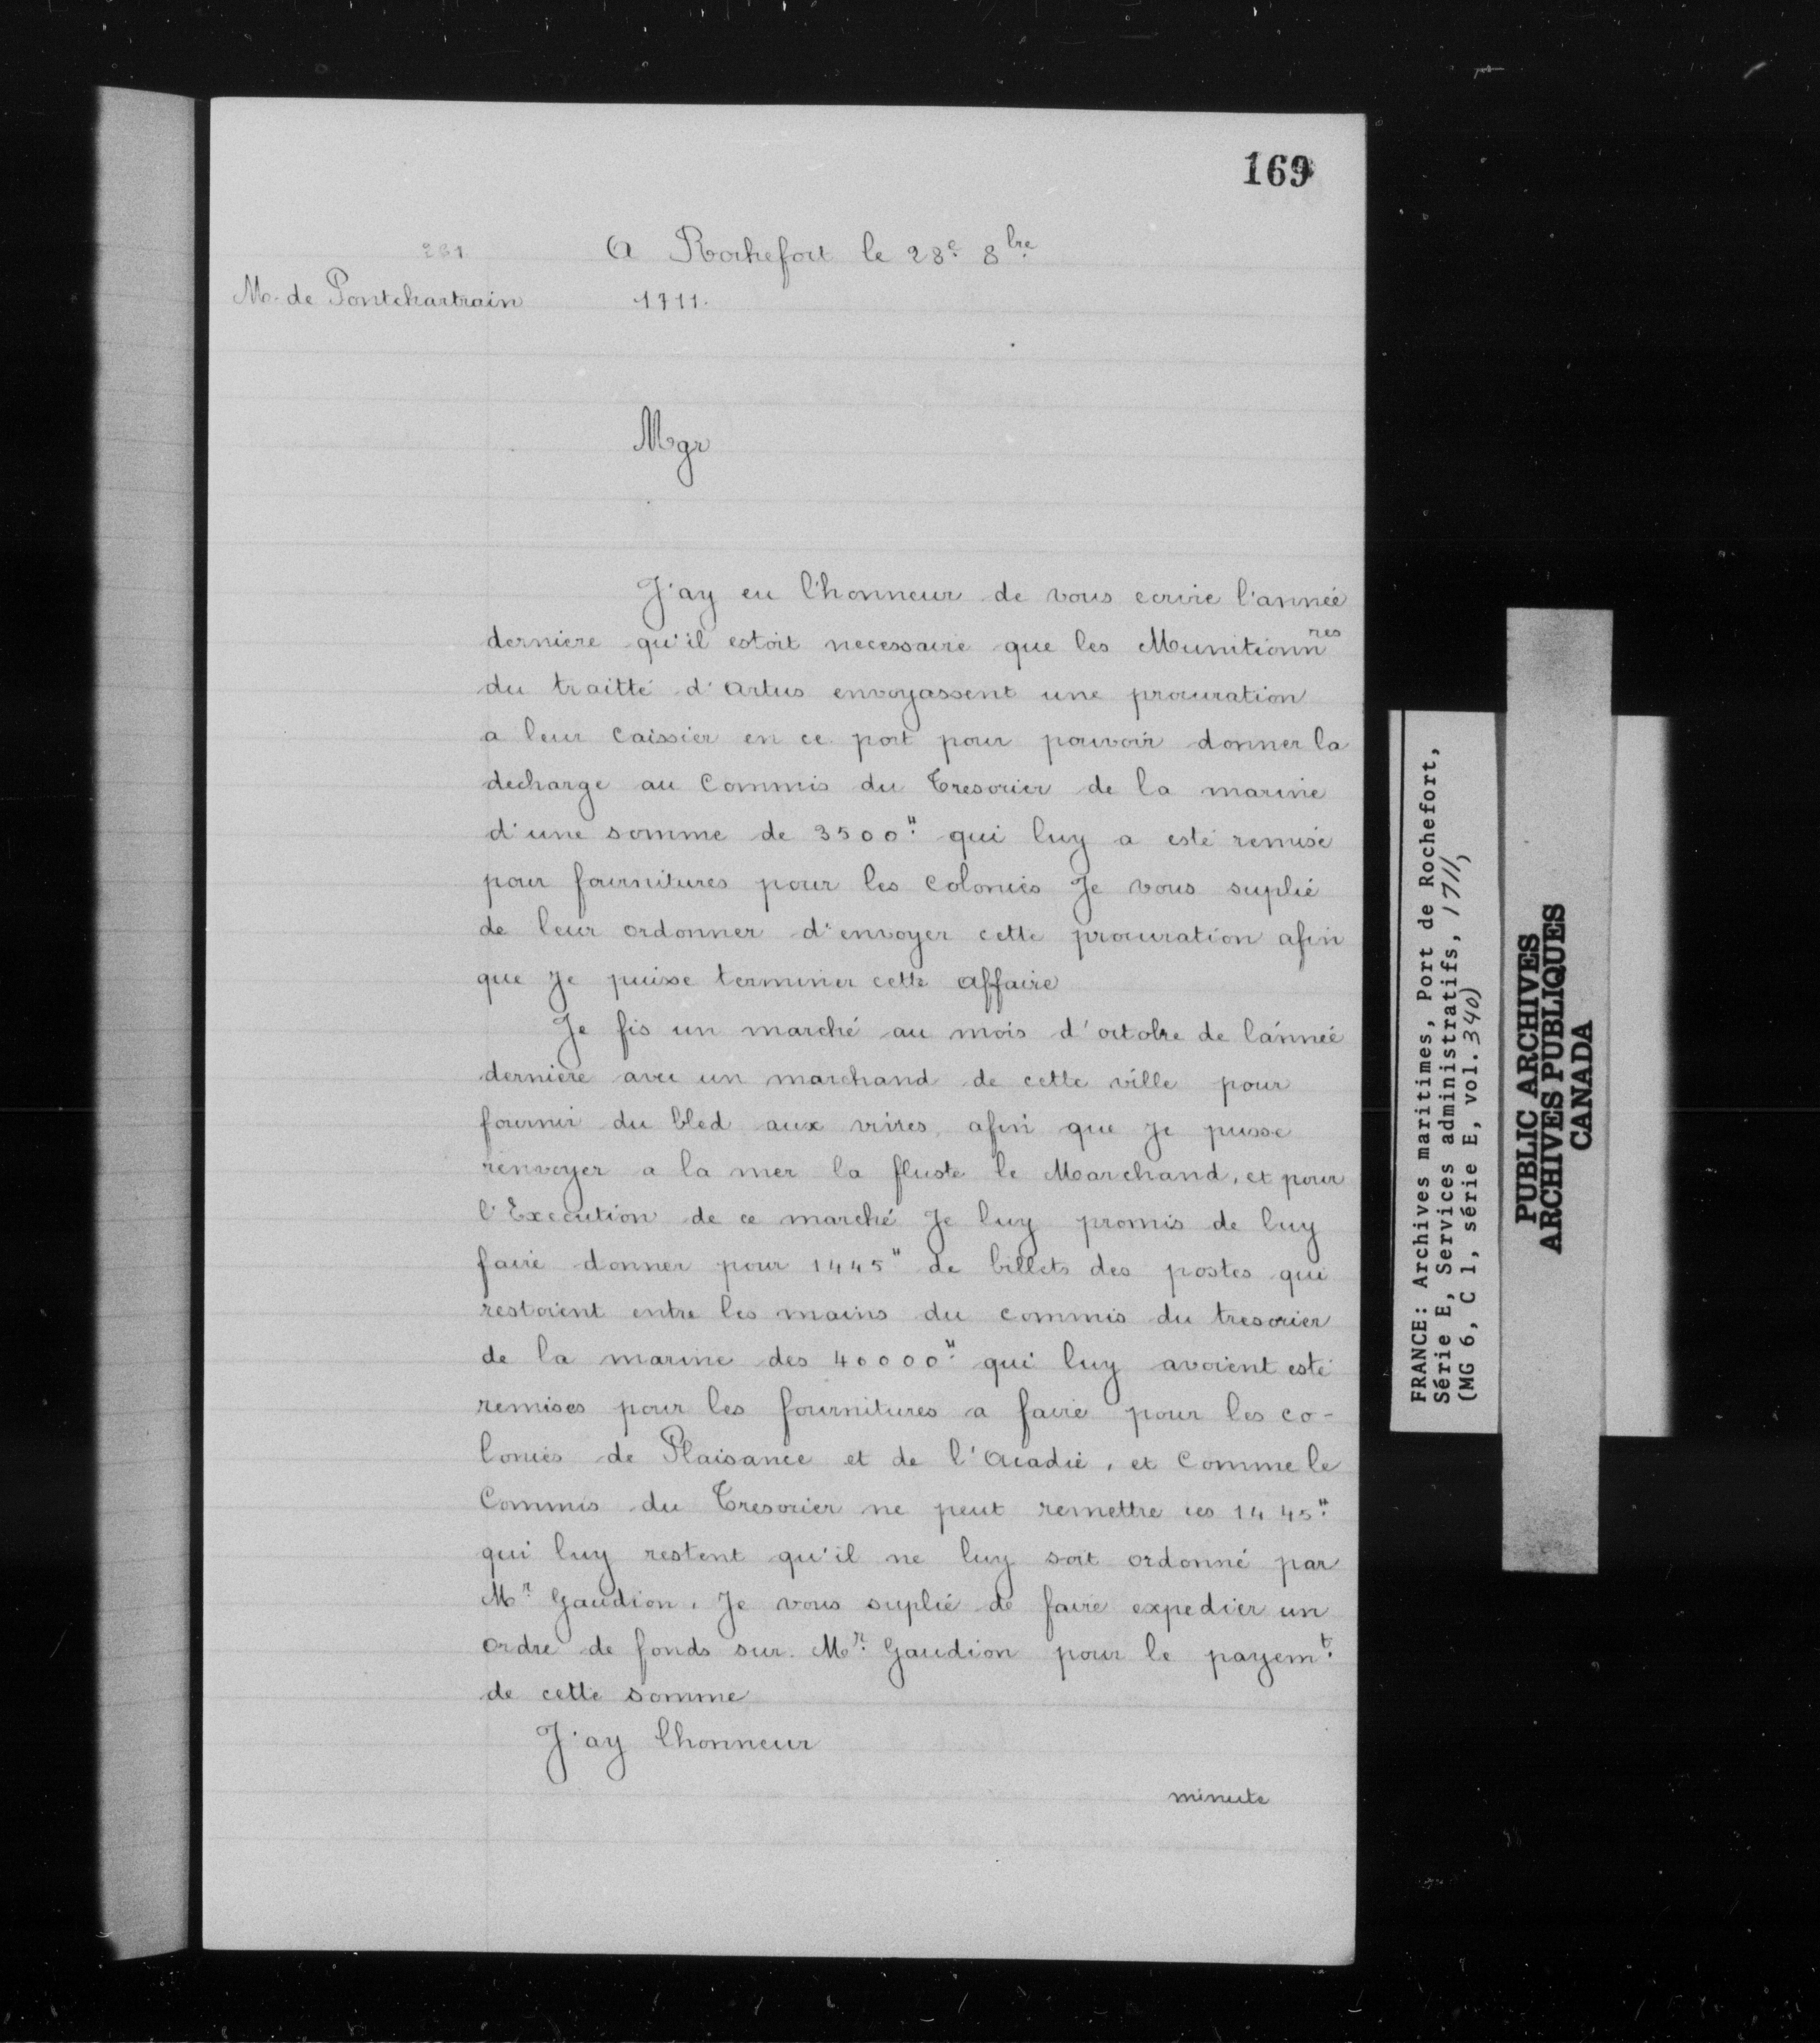 169
261
A Rochefort le 28e 8bre
M. de Pontchartrain
1711.
Mgr
J'ay eu l'honneur de vous ecrire l'année
derniere qu'il estoit necessaire que les Munitionnres
du traitté d'Artus envoyassent une procuration
a leur Caissier en ce port pour pouvoir donner la
decharge au Commis du Tresorier de la marine
d'une somme de 3500" qui luy a esté remise
pour fournitures pour les Colonies Je vous suplie
de leur ordonner d'envoyer cette procuration afin
que je puisse terminer cette affaire
Je fis un marché au mois d'octobre de l'année
derniere avec un marchand de cette ville pour
fournir du bled aux vivres, afin que je pusse
renvoyer a la mer la fluste le Marchand, et pour
l'Execution de ce marché Je luy promis de luy
faire donner pour 1445" de billets des postes qui
restoient entre les mains du commis du tresorier
de la marine des 40000" qui luy avoient esté
remises pour les fournitures a faire pour les co-
lonies de Plaisance et de l'Acadie, et Comme le
Commis du Tresorier ne peut remettre ces 1445"
qui luy restent qu'il ne luy soit ordonné par
Mr. Gaudion, Je vous suplie de faire expedier un
ordre de fonds sur Mr. Gaudion pour le payemt.
de cette somme
J'ay l'honneur
minute
FRANCE: Archives maritimes, Port de Rochefort,
Série E, Services administratifs, 1711,
(MG 6, C 1, série E, vol. 340)
PUBLIC ARCHIVES
ARCHIVES PUBLIQUES
CANADA